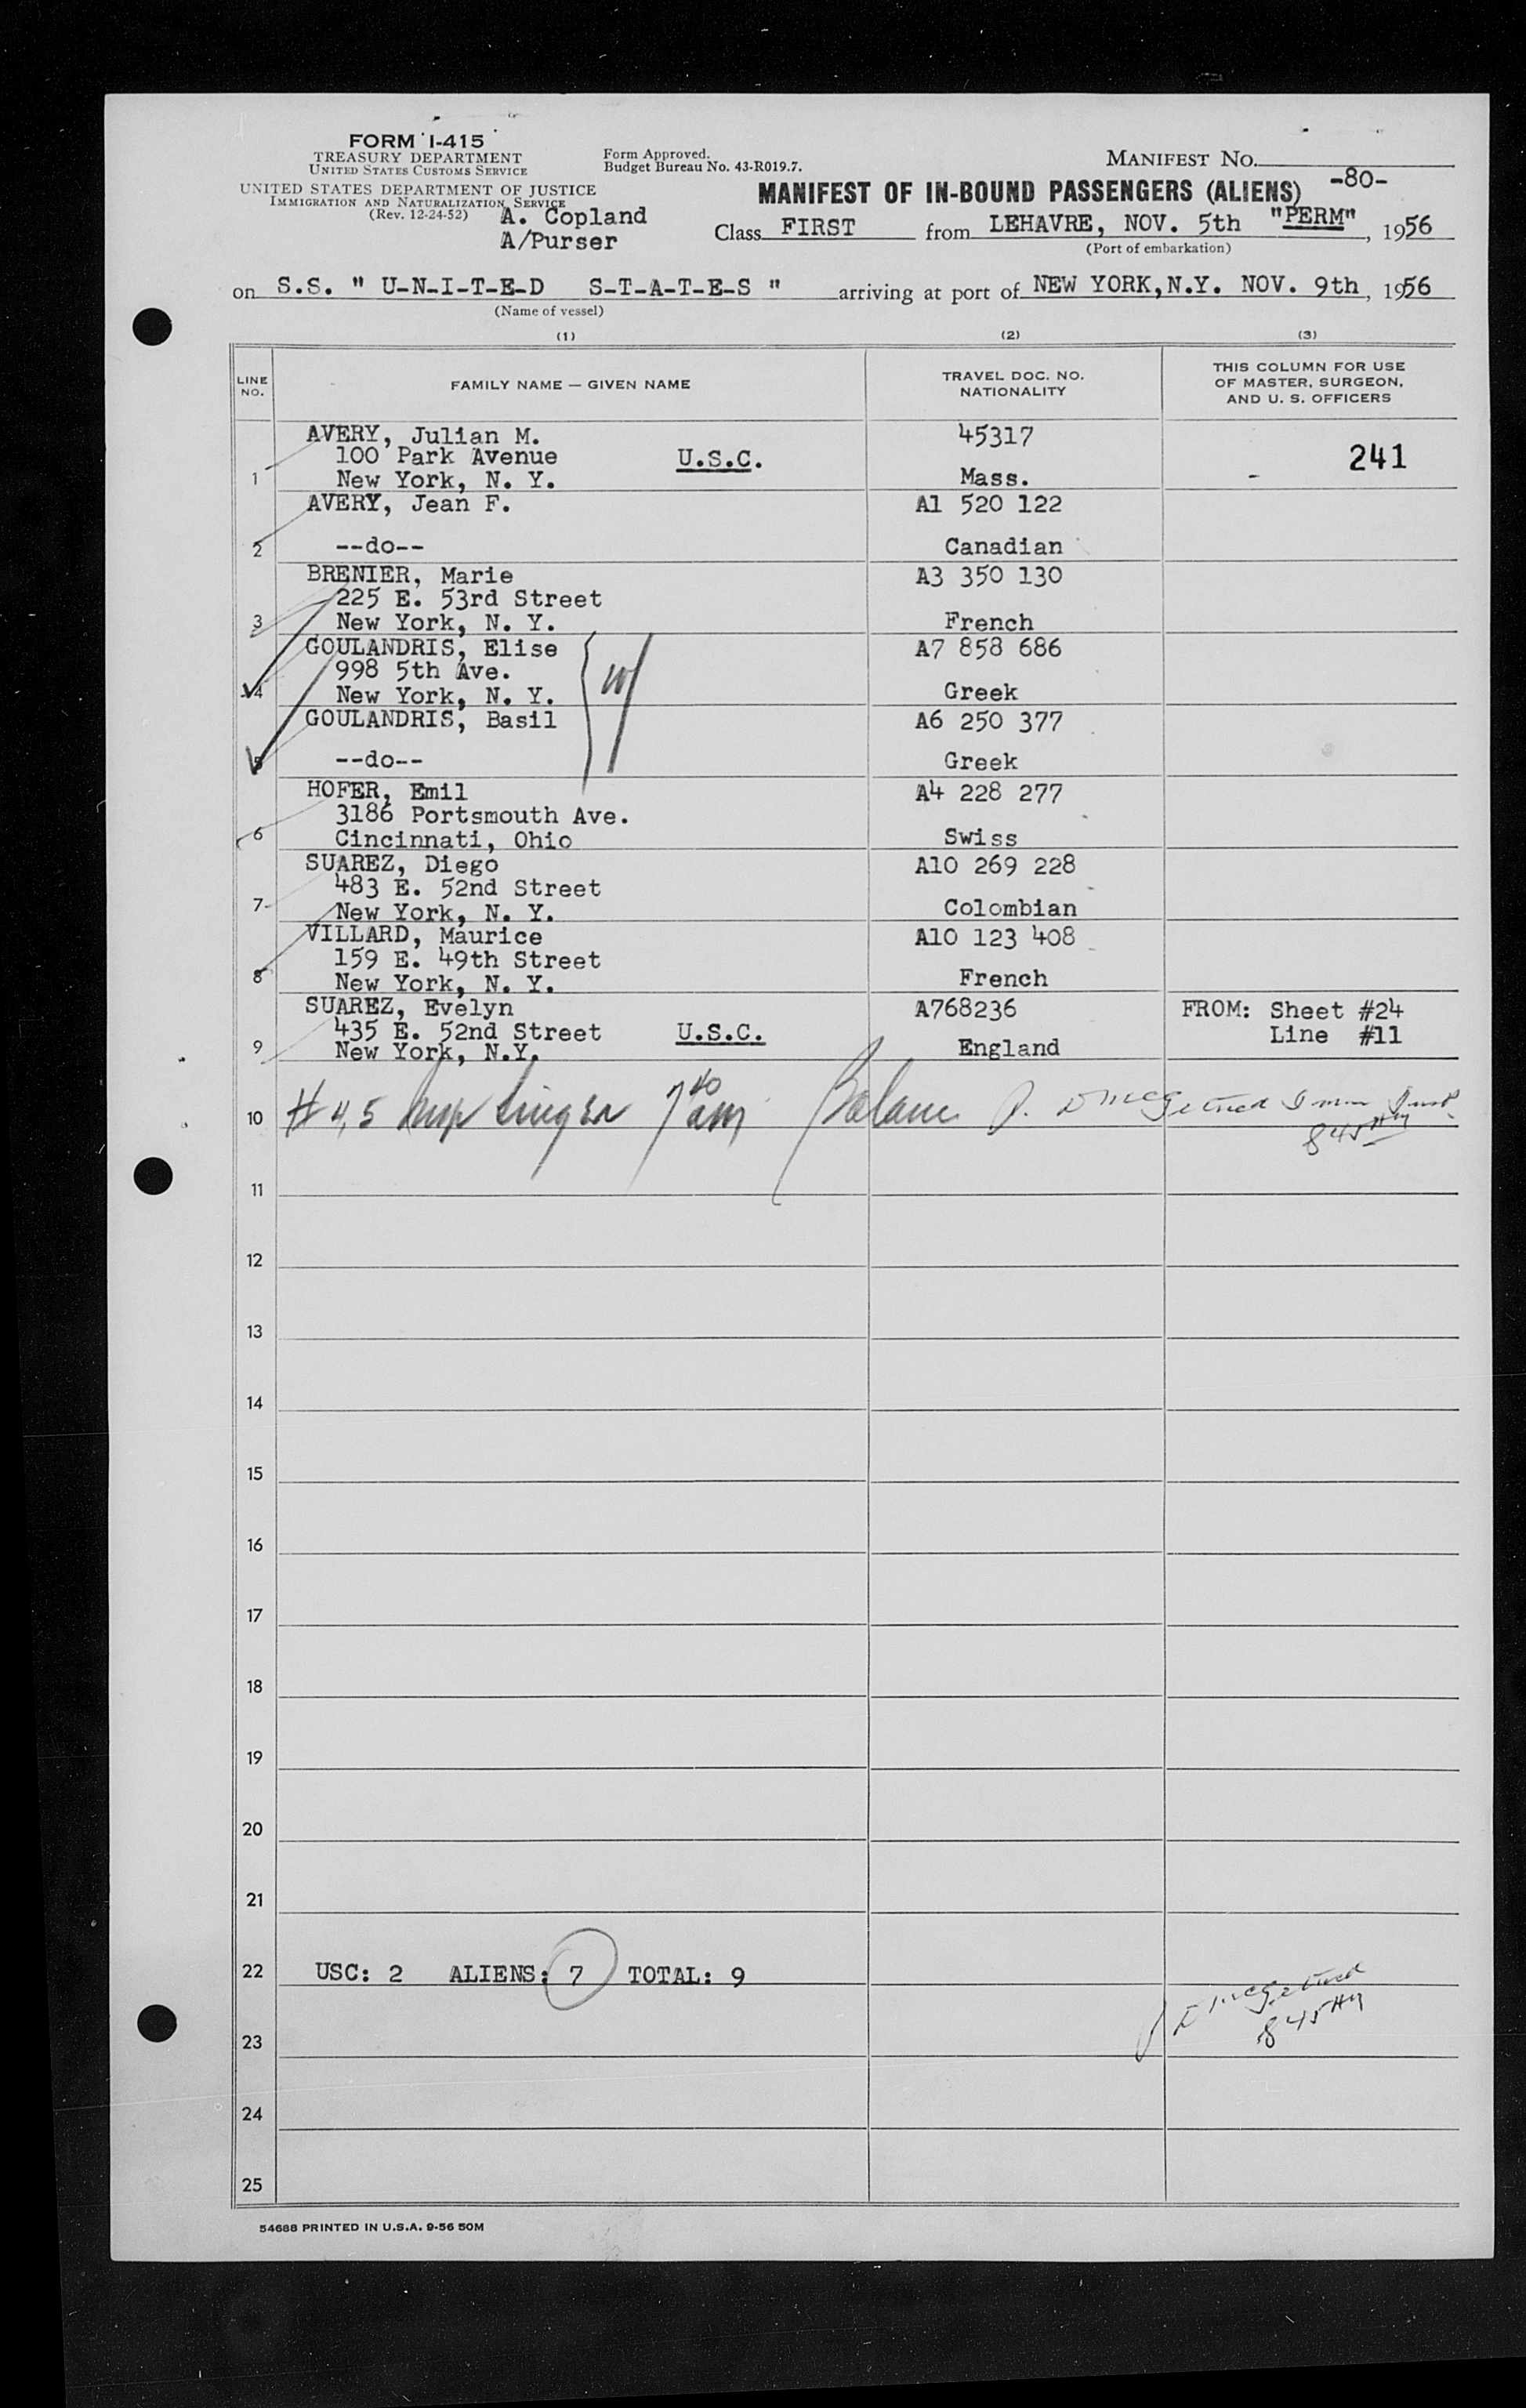 FORM I-415
TREASURY DEPARTMENT
UNITED STATES CUSTOMS SERVICE
UNITED STATES DEPARTMENT OF JUSTICE
IMMIGRATION AND NATURALIZATION SERVICE
(Rev. 12-24-52)
A. Copland
A/Purser
Form Approved.
Budget Bureau No. 43-R019.7.
MANIFEST NO.
-80-
MANIFEST OF IN-BOUND PASSENGERS (ALIENS)
Class FIRST from LEHAVRE, NOV. 5th "PERM", 1956
(Port of embarkation)
on S.S. " U-N-I-T-E-D S-T-A-T-E-S " arriving at port of NEW YORK, N.Y. NOV. 9th, 1956
(Name of vessel)
(1) (2) (3)
LINE NO.
FAMILY NAME — GIVEN NAME
TRAVEL DOC. NO.
NATIONALITY
THIS COLUMN FOR USE
OF MASTER, SURGEON,
AND U. S. OFFICERS
AVERY, Julian M. 45317
100 Park Avenue U.S.C. 241
1 New York, N. Y. Mass. -
AVERY, Jean F. A1 520 122
2 --do-- Canadian
BRENIER, Marie A3 350 130
225 E. 53rd Street
3 New York, N. Y. French
GOULANDRIS, Elise A7 858 686
998 5th Ave.
4 New York, N. Y. Greek
GOULANDRIS, Basil A6 250 377
5 --do-- Greek
HOFER, Emil A4 228 277
3186 Portsmouth Ave.
6 Cincinnati, Ohio Swiss
SUAREZ, Diego A10 269 228
483 E. 52nd Street
7 New York, N. Y. Colombian
VILLARD, Maurice A10 123 408
159 E. 49th Street
8 New York, N. Y. French
SUAREZ, Evelyn A768236 FROM: Sheet #24
435 E. 52nd Street U.S.C. Line #11
9 New York, N.Y. England
10 # 4,5 7 40 am Balance
845 AM
11
12
13
14
15
16
17
18
19
20
21
22 USC: 2 ALIENS: 7 TOTAL: 9
845 AM
23
24
25
54688 PRINTED IN U.S.A. 9-56 50M